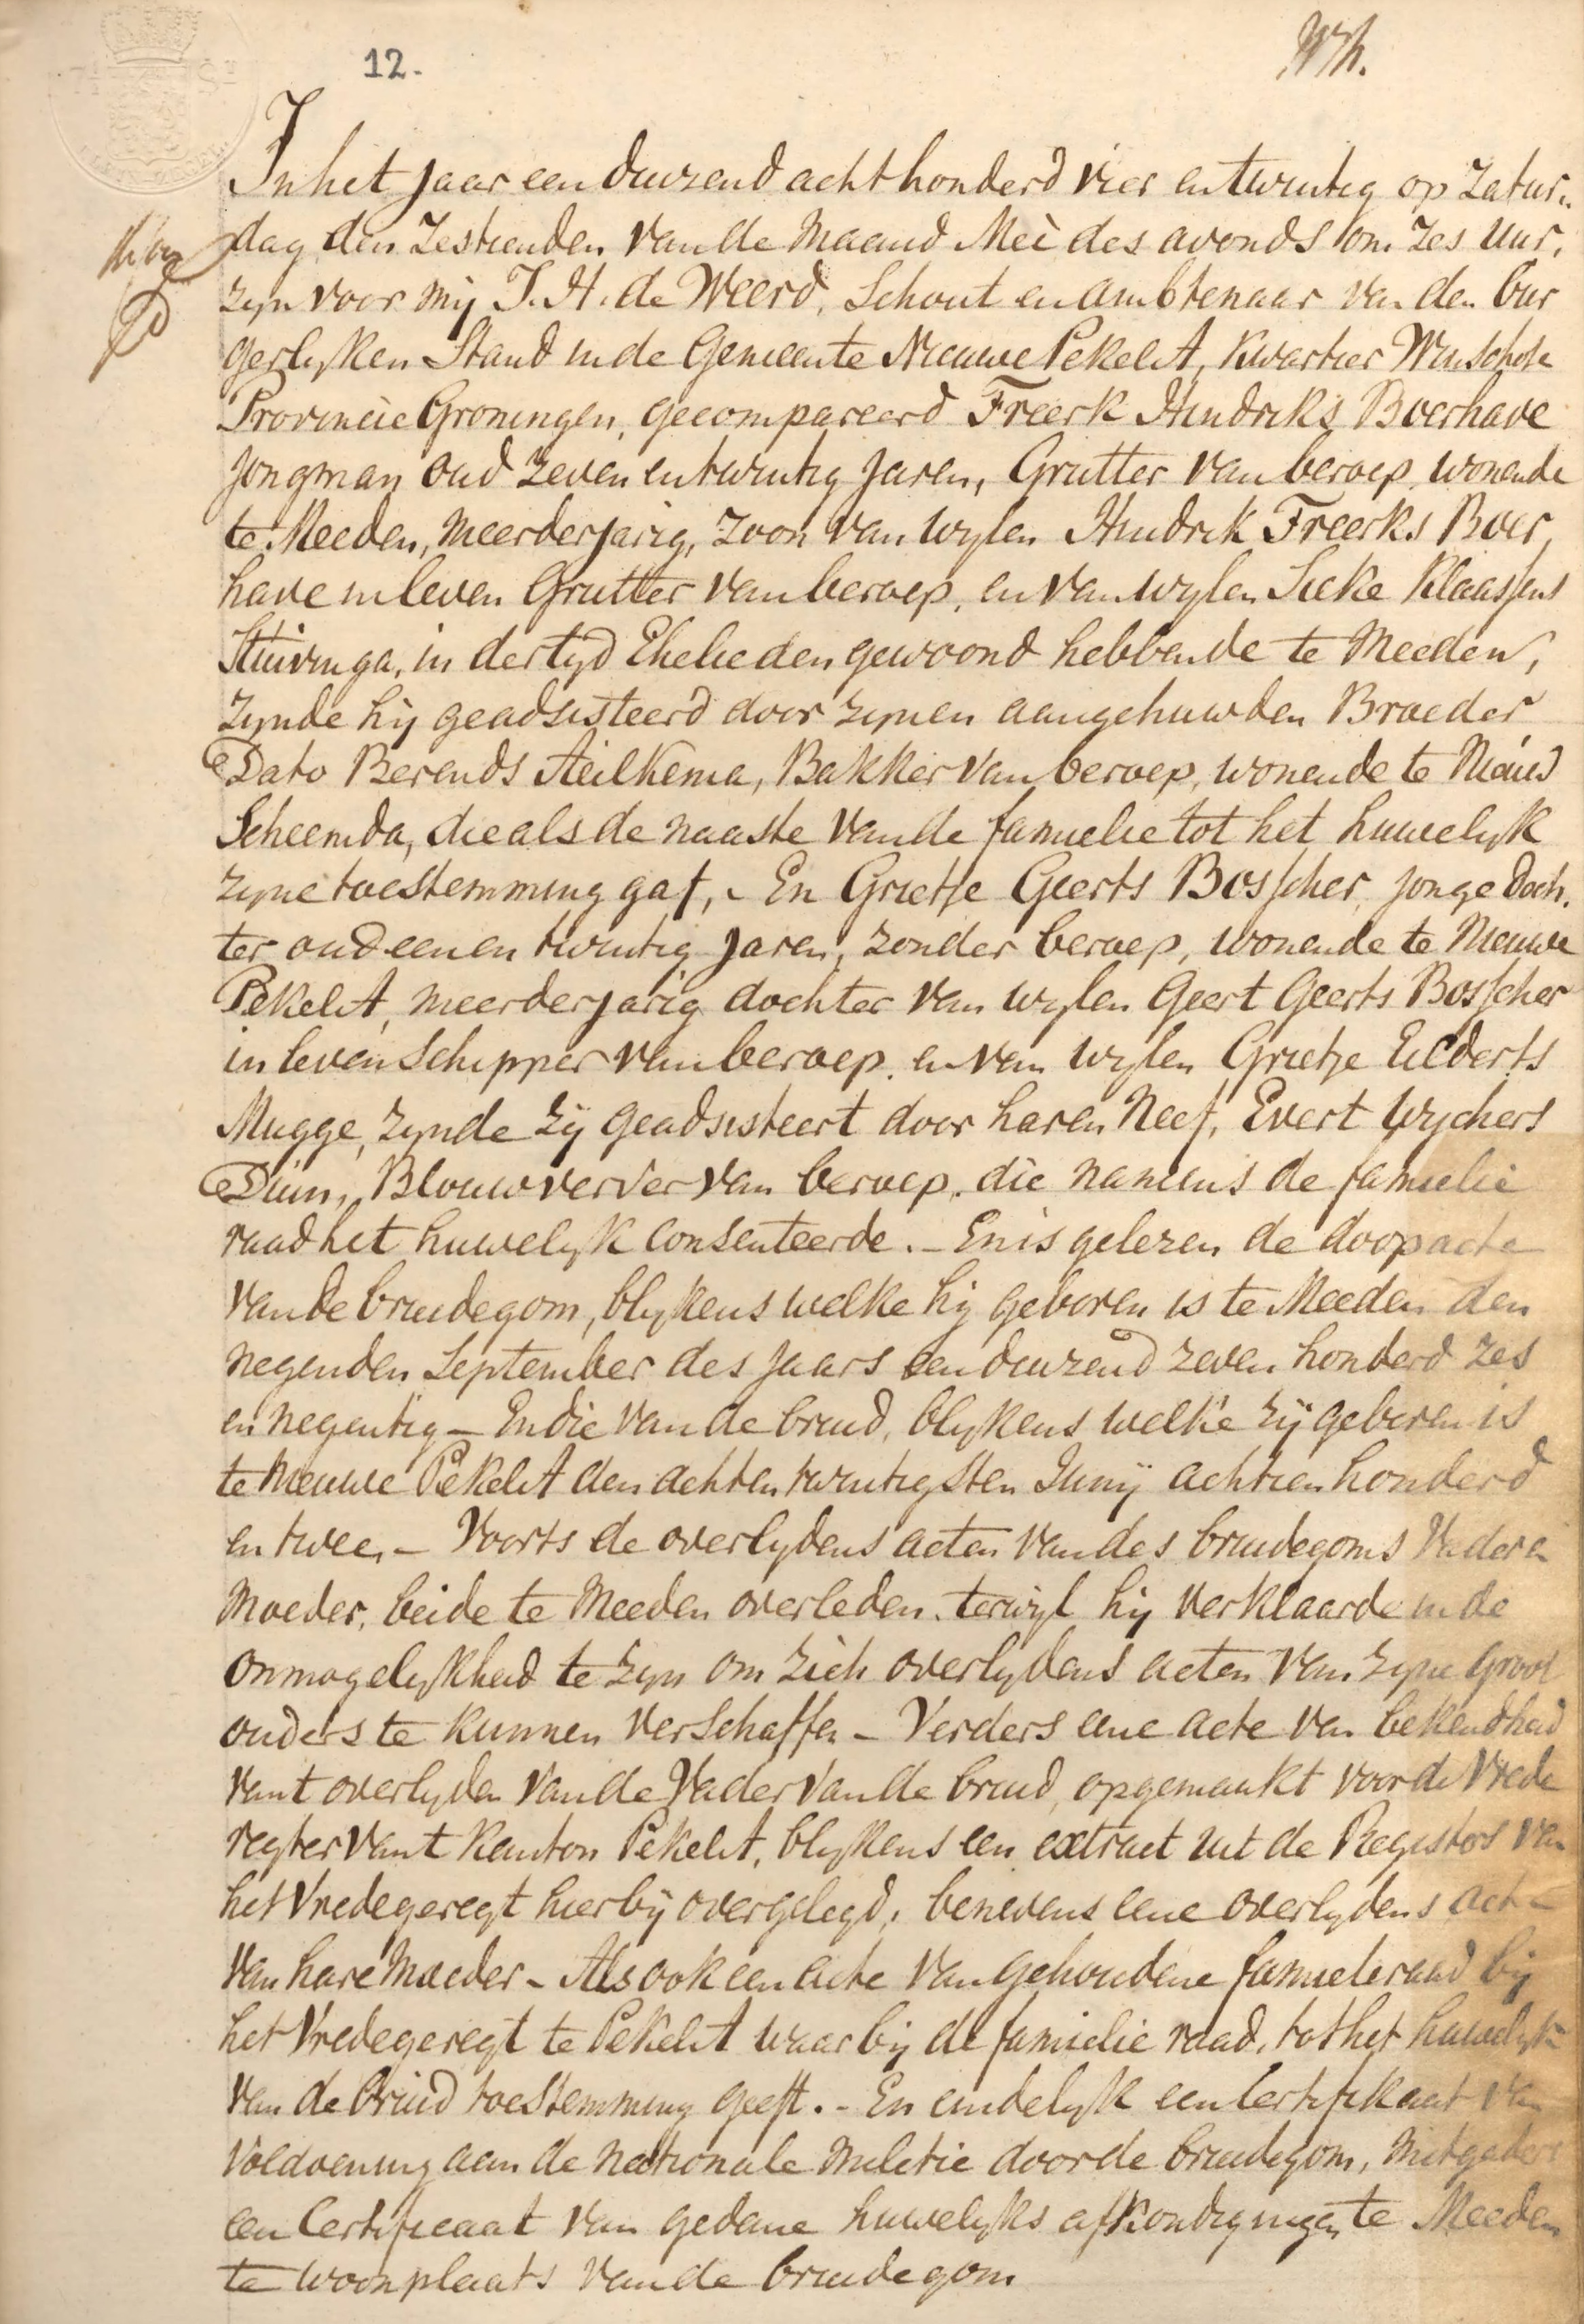 12.
Wh.
In het Jaar een duizend acht honderd vier en twintig op Zatur„
dag den Zestienden van de Maand Mei des avonds om zes uur,
zyn voor mij J. H. de Weerd, Schout en ambtenaar van den bur
gerlyken Stand in de Gemeente Nieuwe PekelA, Kwartier Winschote
Provincie Groningen, gecompareerd Freerk Hindriks Boerhave
jongman oud zeven en twintig Jaren, Grutter van beroep wonende
te Meeden, meerderjarig, zoon van wylen Hindrik Freerks Boer,
have in leven Grutter van beroep, en van wylen Sieke Klaassens
Stuivinga, in der tyd Ehelieden gewoond hebbende te Meeden,
Zynde hij geadsisteerd door zynen aangehuwden Broeder
Dato Berends Aeilkema, Bakker van beroep, wonende te Nieuw
Scheemda, die als de naaste van de famielie tot het huwelyk
zyne toestemming gaf, - En Grietje Geerts Bosscher, jonge doch.
ter oud een en twintig Jaren, zonder beroep, wonende te Nieuwe
PekelA, meerderjarig dochter van wylen Geert Geerts Bosscher
in leven Schipper van beroep, en van wylen Grietje Eilderts
Mugge, Zynde zij geadsisteert door haren Neef, Evert Wychers
Duin, Blouwverver van beroep, die namens de famielie
raad het huwelyk Consenteerde. - En is gelezen de doopacte
van de bruidegom, blykens welke hij geboren is te Meeden den
negenden September des Jaars een duizend zeven honderd zes
en negentig - En die van de bruid, blykens welke zij geboren is
te Nieuwe PekelA den acht en twintigsten Junij achtien honderd
en twee, - Voorts de overlydens acten van des bruidegoms Vader en
Moeder, beide te Meeden overleden, terwyl hij verklaarde in de
onmogelykheid te zyn om zich overlydens acten van zyne groot
ouders te kunnen verschaffen - Verders eene acte van bekendheid
van t overlyden van de Vader van de bruid, opgemaakt voor de Vrede
regter van t Kanton PekelA, blykens een extract uit de Registers van
het Vredegeregt hierbij overgelegd, benevens eene overlydens acte
van hare Moeder - Als ook een acte van gehoudene famieleraad bij
het Vredegeregt te PekelA waar bij de famielie raad, tot het huwelyk
van de Bruid toestemming geeft. - En eindelyk een Certifikaat van
voldoening aan de Nationale Miletie door de bruidegom, mitgaders
een Certificaat van gedane huwelyks afkondigingen te Meeden
te woonplaats van de bruidegom